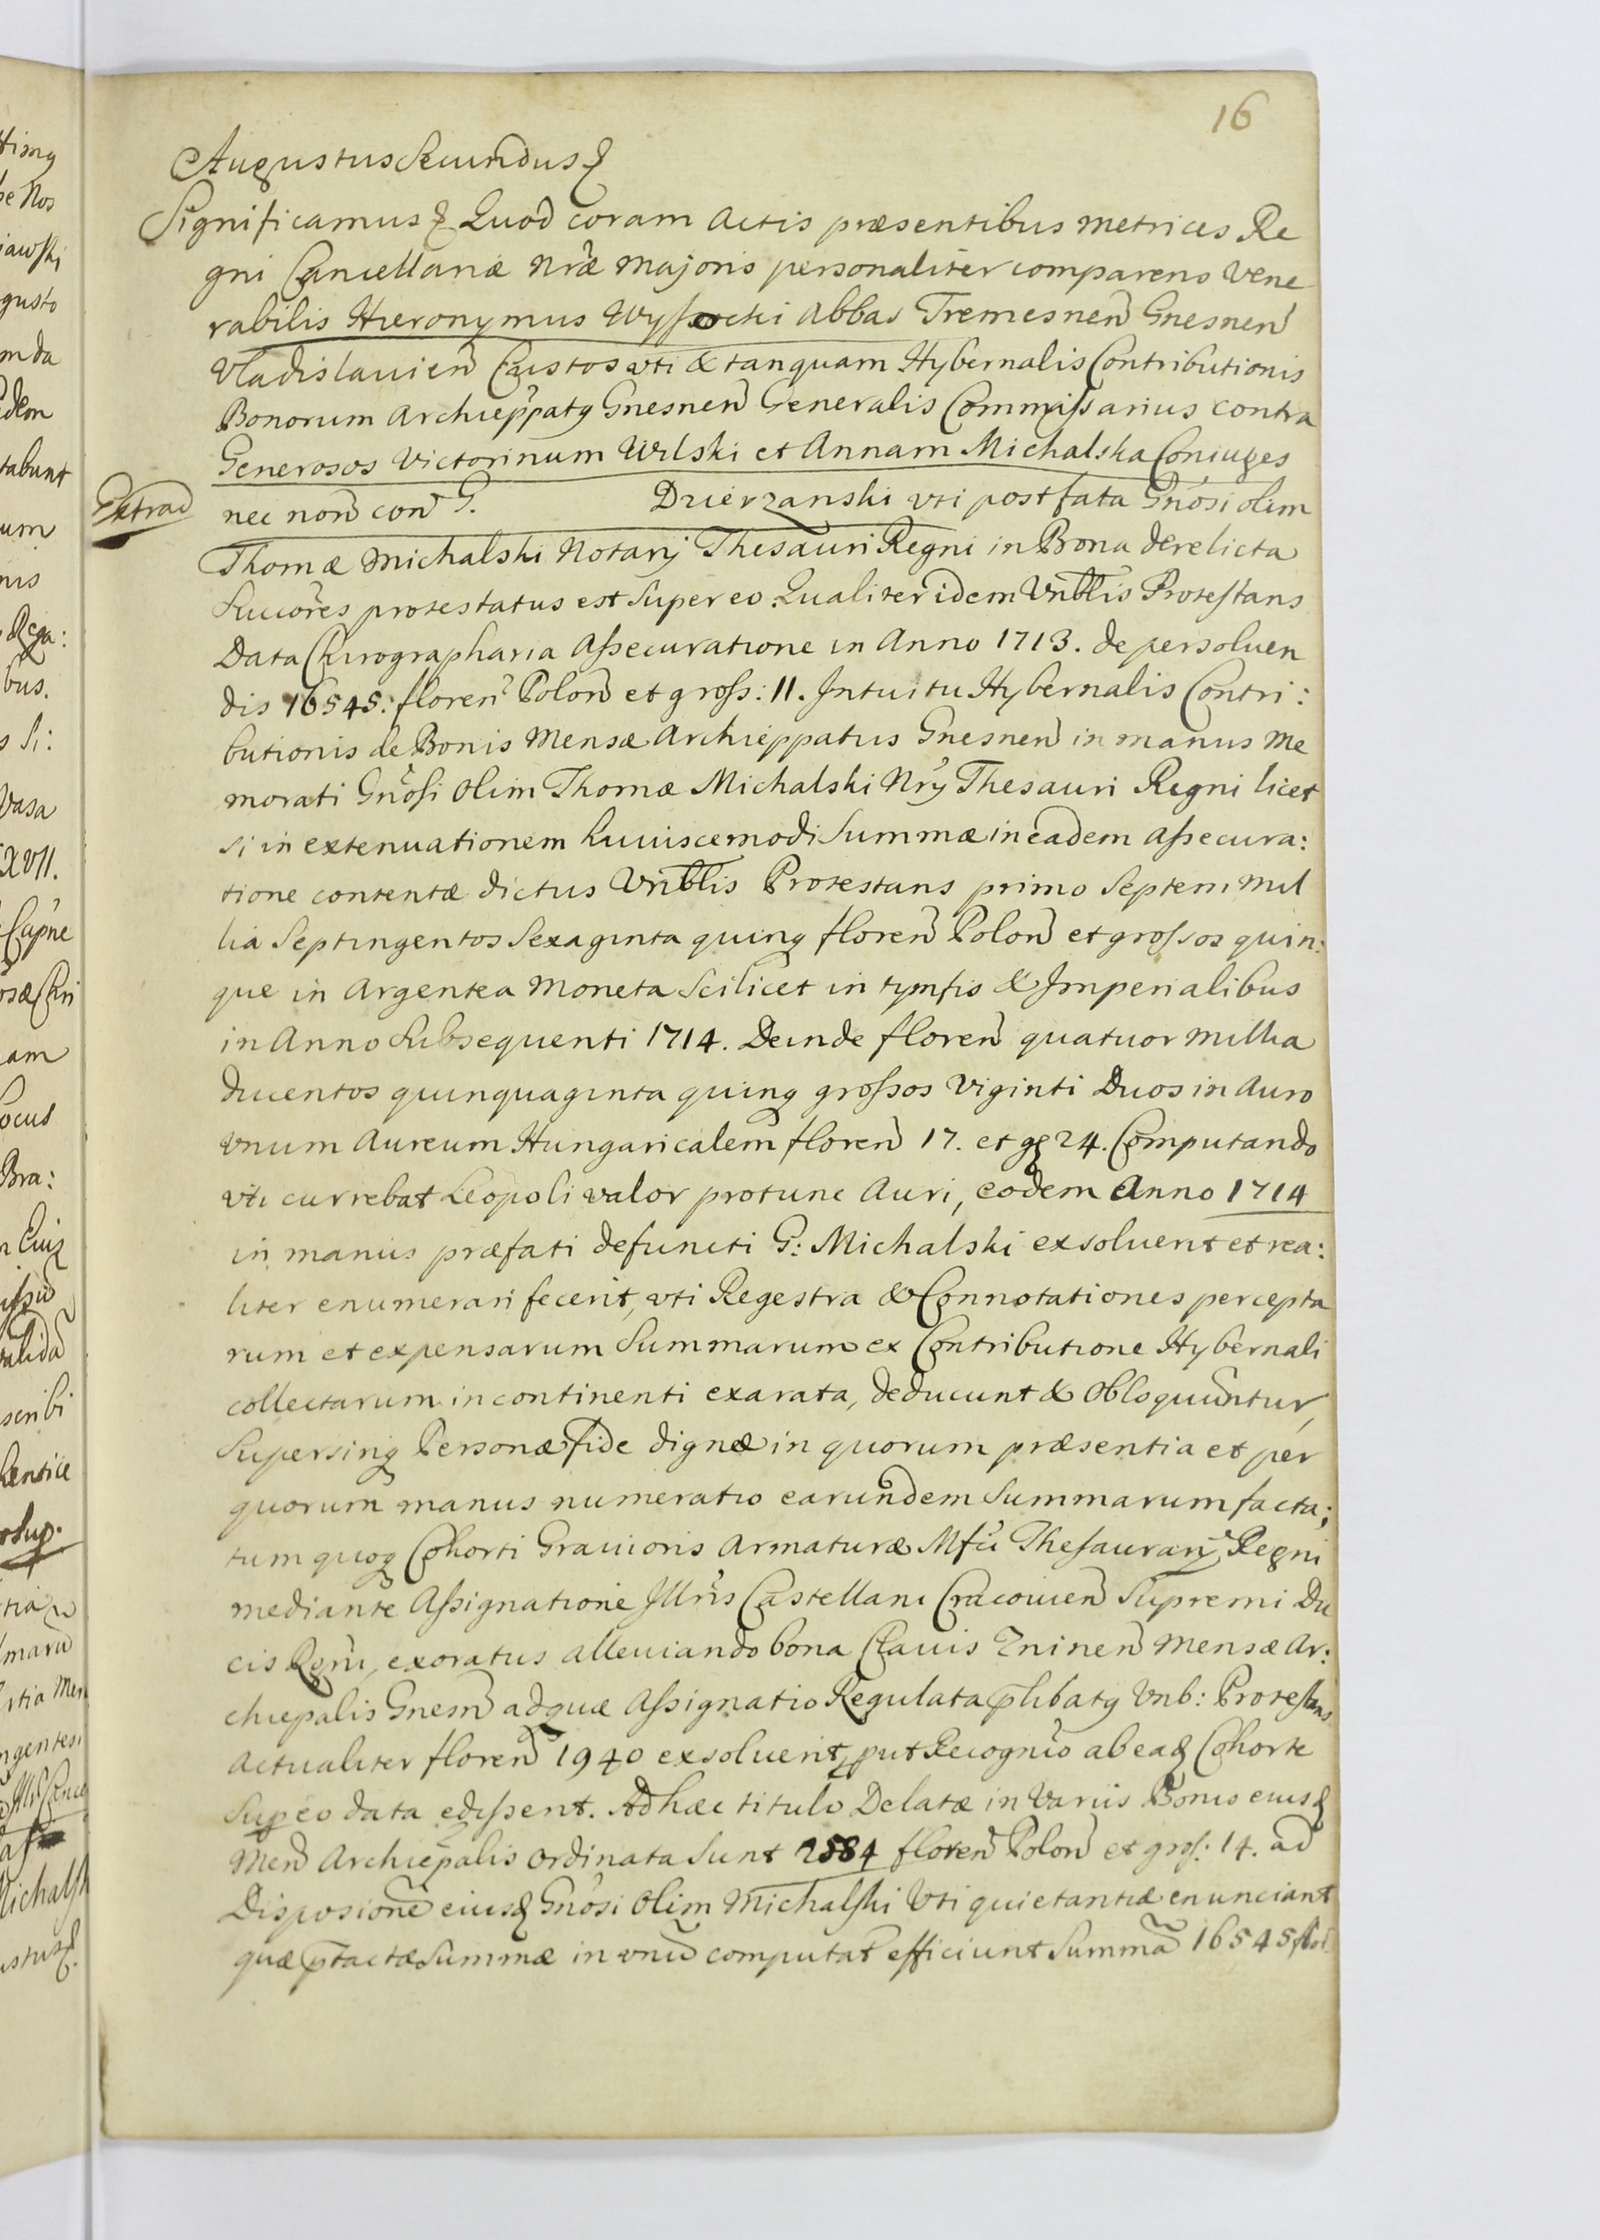 16
Augustus Secundus &
Significamus & Quod coram Actis præsentibus Metrices Re
gni Cancellariæ Nræ Majoris personaliter comparens Vene
rabilis Hieronymus Wyssocki Abbas Tremesnen Gnesnen
Vladislauien Custos uti & tanquam Hybernalis Contributionis
Bonorum Archieppatg Gnesnen Generalis Commissarius contra
Generosos Victorinum Wilski et Annam Michalska Coniuges
Extrad
nec non con G. Dzierzanski uti post fata Gnosi olim
Thomæ Michalski Notarij Thesauri Regni in Bona derelicta
Succores protestatus est super eo. Qualiter idem Vnblis Protestans
Data Chirographaria Assecuratione in Anno 1713. de persoluen
dis 16545: floren Polon et gross: 11. Intuitu Hybernalis Contri:
butionis de Bonis Mensæ Archieppatus Gnesnen in manus Me
morati Gnosi Olim Thomæ Michalski Nrij Thesauri Regni licet
si in extenuationem huiuscemodi Summæ in eadem Assecura:
tione contentæ dictus Vnblis Protestans primo Septem Mil
lia Septingentos Sexaginta quinq floren Polon et grossos quin:
que in Argentea Moneta Scilicet in tymfis & Imperialibus
in Anno Subsequenti 1714. Deinde floren quatuor Millia
Ducentos quinquaginta quinq grossos Viginti Duos in Auro
Vnum Aureum Hungaricalem floren 17. et gg 24. Computando
Vti currebat Leopoli valor protunc Auri, eodem Anno 1714
in manus præfati defuncti G: Michalski exsoluerit et rea:
liter enumerari fecerit, uti Regestra & Connotationes percepta
rum et expensarum Summarum ex Contributione Hybernali
collectarum in continenti exarata, deducunt & Obloquuntur,
Supersinq Personæ fide dignæ in quorum præsentia et per
quorum manus numeratio earundem Summarum facta;
tum quoq Cohorti Grauioris Armaturæ Mfci Thesaurarij Regni
mediante Assignatione Illris Castellani Cracouien Supremi Du
cis Rgni, exoratus alleuiando bona Clauis Zninen Mensæ Ar:
chiepalis Gnesn ad quæ Assignatio Regulata plibatg Vnb: Protestans
Actualiter floren 1940 exsoluerit, put Recognitio ab ea& Cohorte
Sup eo data edissent. Ad hæc titulo Delatæ in Variis Bonis eius&
Men Archiepalis Ordinata Sunt 2584 floren Polon et gros: 14. ad
Disposione eius& Gnosi Olim Michalski Vti quietantiæ enunciant
quæ ptactæ Summæ in vnu computat efficiunt Summa 16545 flor